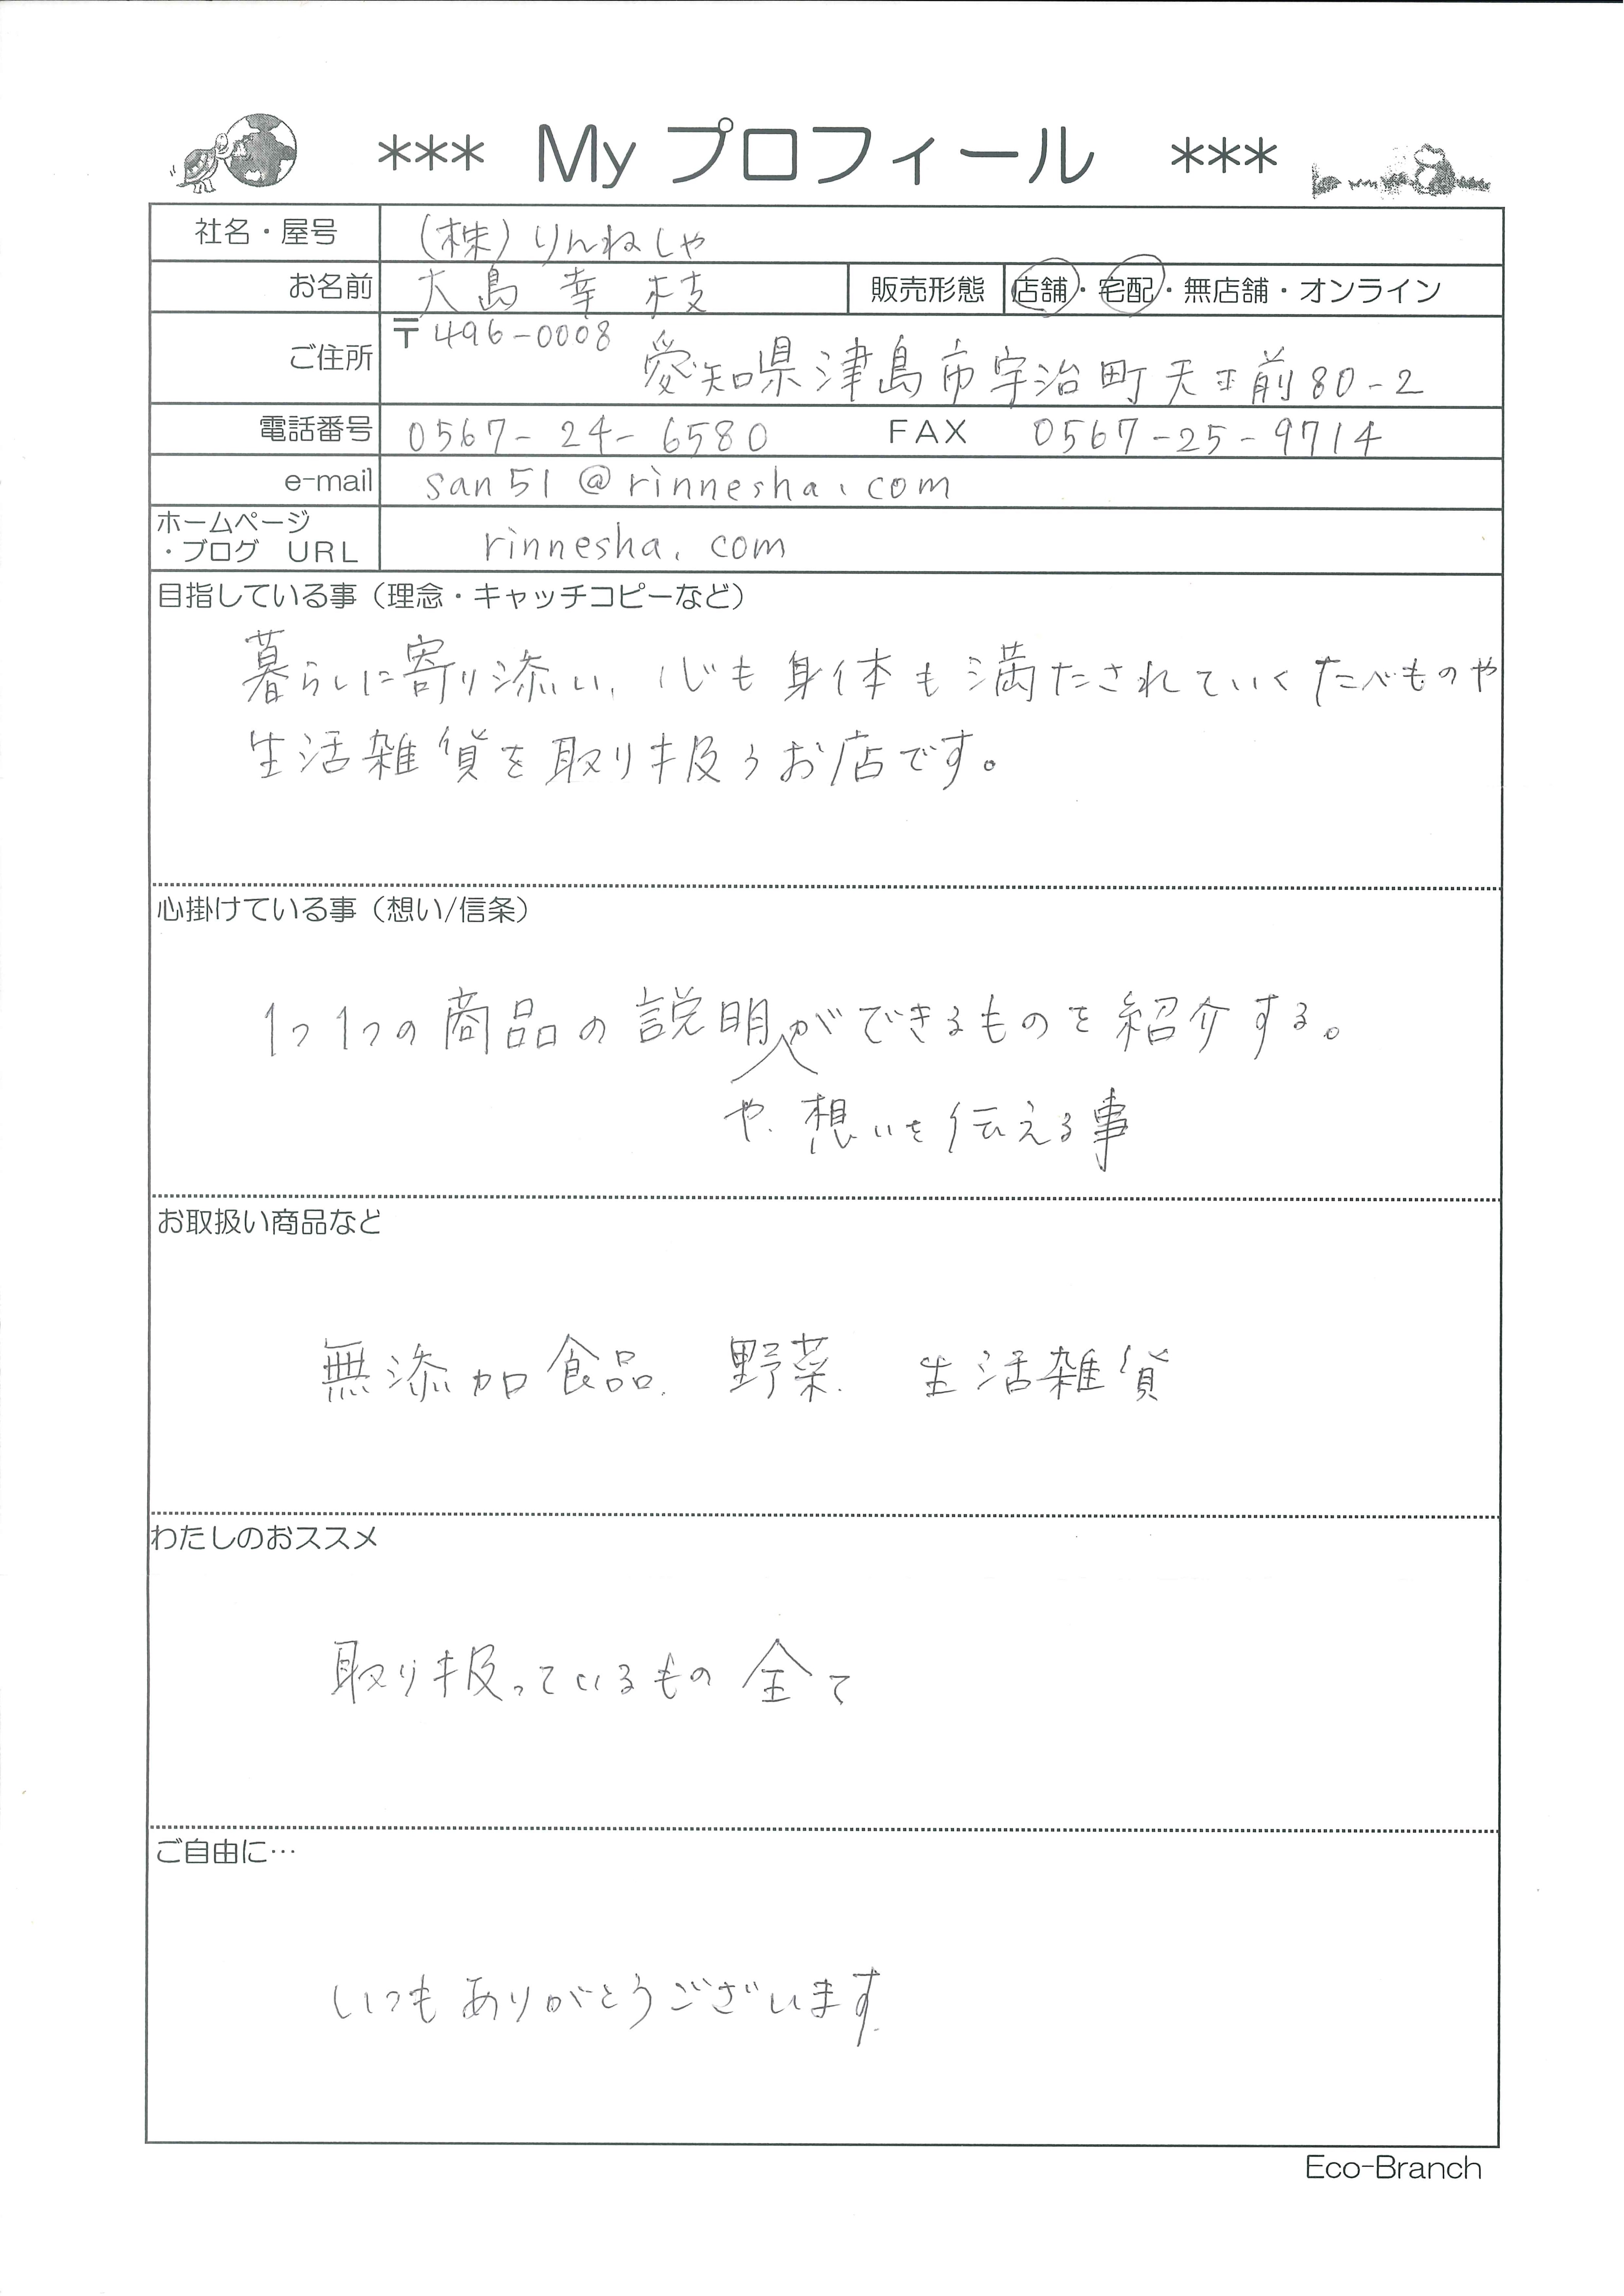 *** My プロフィール ***
社名・屋号 (株)りんねしゃ
お名前 大島 幸枝 販売形態 店舗・宅配・無店舗・オンライン
ご住所 〒496-0008 愛知県津島市宇治町天王前80-2
電話番号 0567-24-6580 FAX 0567-25-9714
e-mail san51@rinnesha.com
ホームページ
・ブログ URL rinnesha.com
目指している事（理念・キャッチコピーなど）
暮らしに寄り添い、心も身体も満たされていくたべものや
生活雑貨を取り扱うお店です。
心掛けている事（想い/信条）
1つ1つの商品の説明ができるものを紹介する。
や、想いを伝える事
お取扱い商品など
無添加食品、野菜、生活雑貨
わたしのおススメ
取り扱っているもの全て
ご自由に…
いつもありがとうございます。
Eco-Branch